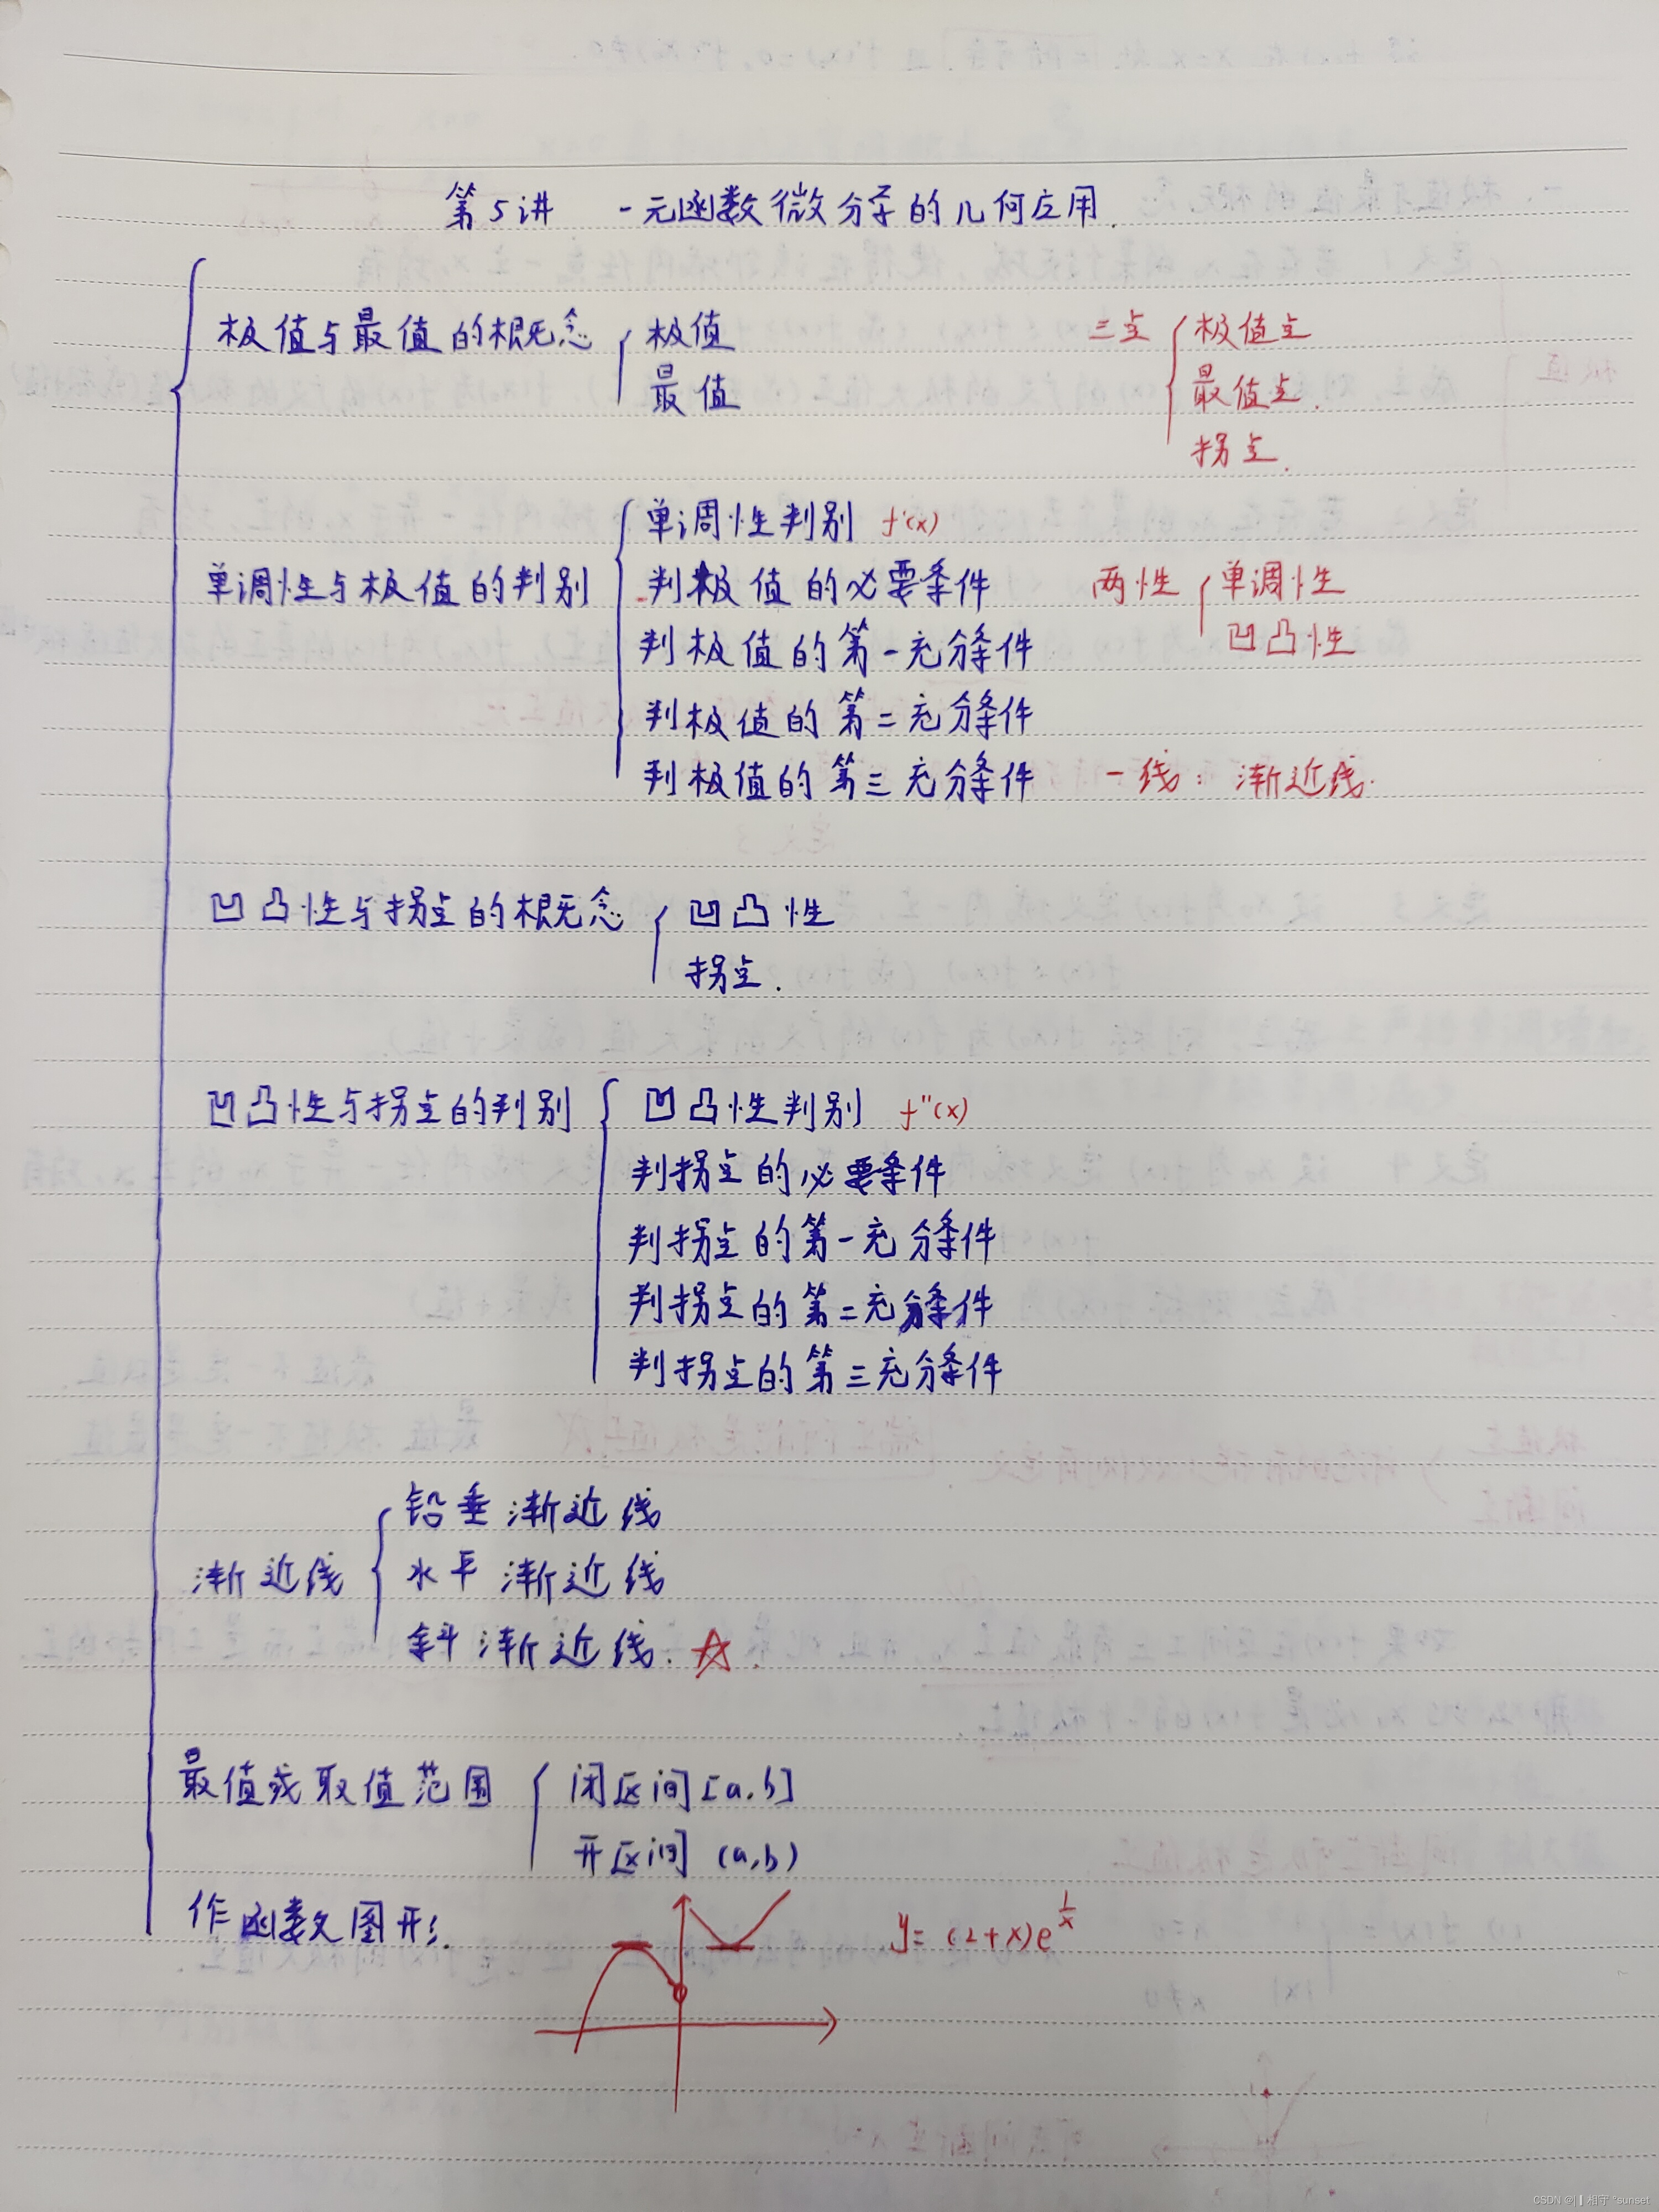 第5讲 一元函数微分学的几何应用.
极值与最值的概念 极值
最值
三点 极值点
最值点.
拐点.
单调性与极值的判别 单调性判别 f'(x)
判极值的必要条件
判极值的第一充分条件
判极值的第二充分条件
判极值的第三充分条件
两性 单调性
凹凸性
一线: 渐近线.
凹凸性与拐点的概念 凹凸性
拐点.
凹凸性与拐点的判别 凹凸性判别 f''(x)
判拐点的必要条件
判拐点的第一充分条件
判拐点的第二充分条件
判拐点的第三充分条件
渐近线 铅垂渐近线
水平渐近线
斜渐近线. ☆
最值或取值范围 闭区间[a,b]
开区间 (a,b)
作函数图形.
y=(2+x)e^{1/x}